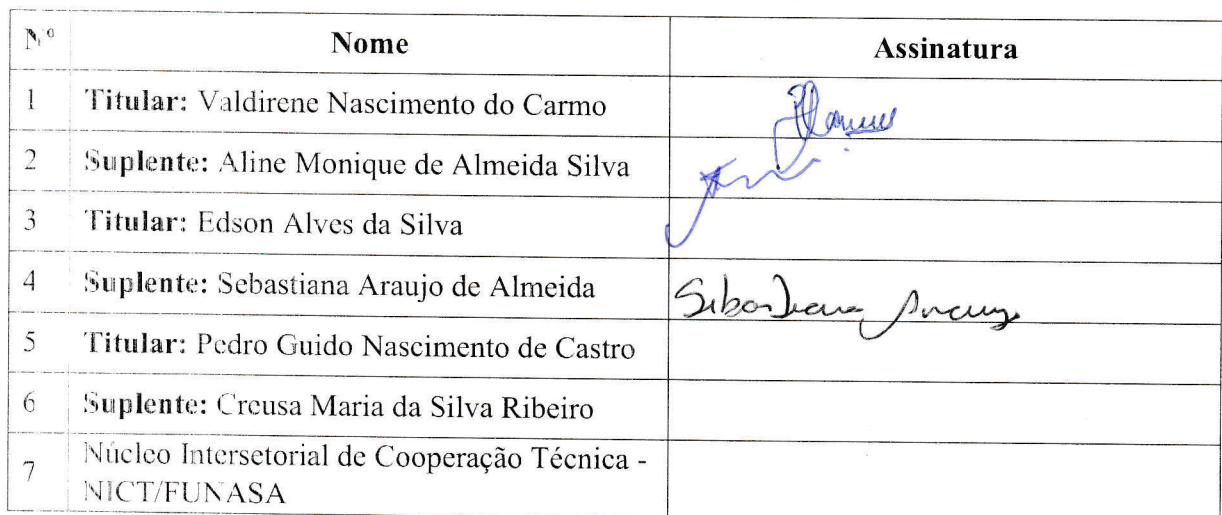 Nº Nome Assinatura
1 Titular: Valdirene Nascimento do Carmo
2 Suplente: Aline Monique de Almeida Silva
3 Titular: Edson Alves da Silva
4 Suplente: Sebastiana Araujo de Almeida Sebastiana Araujo
5 Titular: Pedro Guido Nascimento de Castro
6 Suplente: Creusa Maria da Silva Ribeiro
7 Núcleo Intersetorial de Cooperação Técnica -
NICT/FUNASA